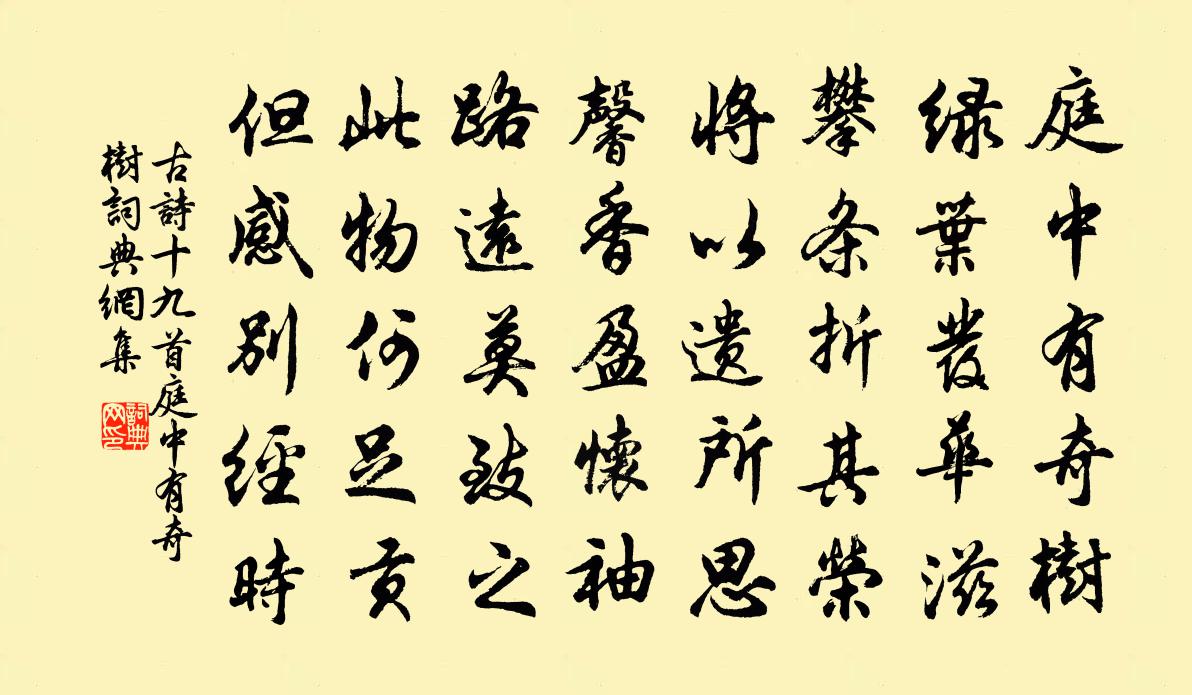 庭中有奇樹
緑葉發華滋
攀条折其榮
將以遺所思
馨香盈懷袖
路遠莫致之
此物何足贡
但感别經時
古詩十九首庭中有奇
樹詞典網集
詞典
网印